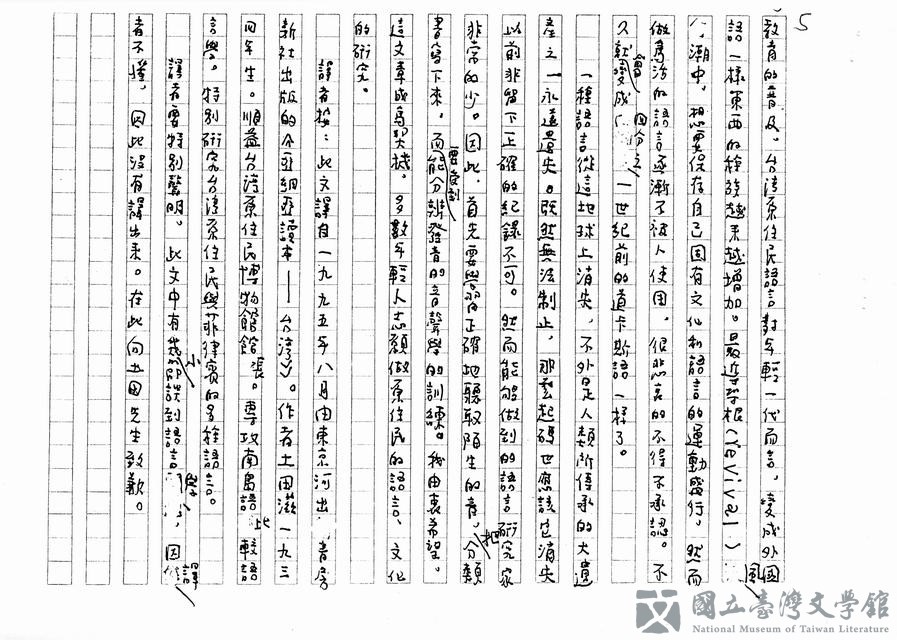 5
教育的普及，台湾原住民語言對年輕一代而言，變成外國
語一樣東西的種族越來越增加。最近尋根(revival)風
潮中，想要保存自己固有文化和語言的運動盛行，然而
做為活的語言逐漸不被人使用，很悲哀的不得不承認。不
久就會變成四分之一世紀前的道卡斯語一樣了。
一種語言從這地球上消失，不外是人類所傳承的大遺
產之一永遠喪失。既然無法制止，那麼起碼也應該在消失
以前非留下正確的紀錄不可。然而能夠做到的語言研究家
非常的少。因此，首先要學習正確地聽取陌生的音，把分類
書寫下來，而能分辨發音的音聲學的訓練。我由衷希望，
這文章成為契機，多數年輕人志願做原住民的語言、文化
的研究。
譯者按：此文譯自一九九五年八月由東京河出書房
新社出版的《亞細亞讀本——台湾》。作者土田滋一九三
四年生。順益台湾原住民博物館館長。專攻南島語比較語
言學。特別研究台湾原住民與菲律賓的多種語言。
譯者要特別聲明。此文中有幾小節談到語言學，因譯
者不懂，因此沒有譯出來。在此向土田先生致歉。
國立臺灣文學館
National Museum of Taiwan Literature